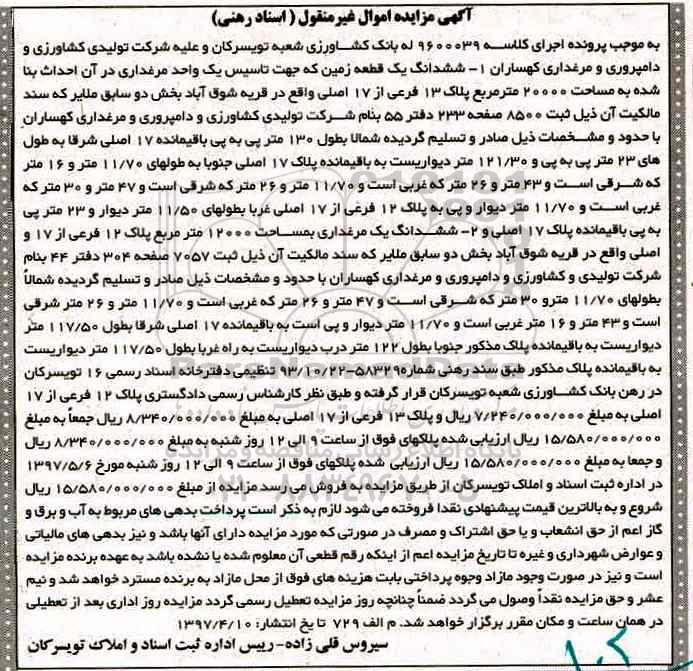 آگهی مزایده اموال غیرمنقول ( اسناد رهنی)
به موجب پرونده اجرای کلاسه ۹۶۰۰۰۳۹ له بانک کشاورزی شعبه تویسرکان و علیه شرکت تولیدی کشاورزی و
دامپروری و مرغداری کهساران ۱- ششدانگ یک قطعه زمین که جهت تاسیس یک واحد مرغداری در آن احداث بنا
شده به مساحت ۲۰۰۰۰ مترمربع پلاک ۱۳ فرعی از ۱۷ اصلی واقع در قریه شوق آباد بخش دو سابق ملایر که سند
مالکیت آن ذیل ثبت ۸۵۰۰ صفحه ۲۳۳ دفتر ۵۵ بنام شرکت تولیدی کشاورزی و دامپروری و مرغداری کهساران
با حدود و مشخصات ذیل صادر و تسلیم گردیده شمالا بطول ۱۳۰ متر پی به پی باقیمانده ۱۷ اصلی شرقا به طول
های ۲۳ متر پی به پی و ۱۲۱/۳۰ متر دیواریست به باقیمانده پلاک ۱۷ اصلی جنوبا به طولهای ۱۱/۷۰ متر و ۱۶ متر
که شرقی است و ۴۳ متر و ۲۶ متر که غربی است و ۱۱/۷۰ متر و ۲۶ متر که شرقی است و ۴۷ متر و ۳۰ متر که
غربی است و ۱۱/۷۰ متر دیوار و پی به پلاک ۱۲ فرعی از ۱۷ اصلی غربا بطولهای ۱۱/۵۰ متر دیوار و ۲۳ متر پی
به پی باقیمانده پلاک ۱۷ اصلی و ۲- ششدانگ یک مرغداری بمساحت ۱۲۰۰۰ متر مربع پلاک ۱۲ فرعی از ۱۷ و
اصلی واقع در قریه شوق آباد بخش دو سابق ملایر که سند مالکیت آن ذیل ثبت ۷۰۵۷ صفحه ۳۰۴ دفتر ۴۴ بنام
شرکت تولیدی و کشاورزی و دامپروری و مرغداری کهساران با حدود و مشخصات ذیل صادر و تسلیم گردیده شمالاً
بطولهای ۱۱/۷۰ مترو ۳۰ متر که شرقی است و ۴۷ متر و ۲۶ متر که غربی است و ۱۱/۷۰ متر و ۲۶ متر شرقی
است و ۴۳ متر و ۱۶ متر غربی است و ۱۱/۷۰ متر دیوار و پی است به باقیمانده ۱۷ اصلی شرقا بطول ۱۱۷/۵۰ متر
دیواریست به باقیمانده پلاک مذکور جنوبا بطول ۱۲۲ متر درب دیواریست به راه غربا بطول ۱۱۷/۵۰ متر دیواریست
به باقیمانده پلاک مذکور طبق سند رهنی شماره۵۸۳۲۹-۹۳/۱۰/۲۲ تنظیمی دفترخانه اسناد رسمی ۱۶ تویسرکان
در رهن بانک کشاورزی شعبه تویسرکان قرار گرفته و طبق نظر کارشناس رسمی دادگستری پلاک ۱۲ فرعی از ۱۷
اصلی به مبلغ ۷/۲۴۰/۰۰۰/۰۰۰ ریال و پلاک ۱۳ فرعی از ۱۷ اصلی به مبلغ ۸/۳۴۰/۰۰۰/۰۰۰ ریال جمعاً به مبلغ
۱۵/۵۸۰/۰۰۰/۰۰۰ ریال ارزیابی شده پلاکهای فوق از ساعت ۹ الی ۱۲ روز شنبه به مبلغ ۸/۳۴۰/۰۰۰/۰۰۰ ریال
و جمعا به مبلغ ۱۵/۵۸۰/۰۰۰/۰۰۰ ریال ارزیابی شده پلاکهای فوق از ساعت ۹ الی ۱۲ روز شنبه مورخ ۱۳۹۷/۵/۶
در اداره ثبت اسناد و املاک تویسرکان از طریق مزایده به فروش می رسد مزایده از مبلغ ۱۵/۵۸۰/۰۰۰/۰۰۰ ریال
شروع و به بالاترین قیمت پیشنهادی نقدا فروخته می شود لازم به ذکر است پرداخت بدهی های مربوط به آب و برق و
گاز اعم از حق انشعاب و یا حق اشتراک و مصرف در صورتی که مورد مزایده دارای آنها باشد و نیز بدهی های مالیاتی
و عوارض شهرداری و غیره تا تاریخ مزایده اعم از اینکه رقم قطعی آن معلوم شده یا نشده باشد به عهده برنده مزایده
است و نیز در صورت وجود مازاد وجوه پرداختی بابت هزینه های فوق از محل مازاد به برنده مسترد خواهد شد و نیم
عشر و حق مزایده نقداً وصول می گردد ضمناً چنانچه روز مزایده تعطیل رسمی گردد مزایده روز اداری بعد از تعطیلی
در همان ساعت و مکان مقرر برگزار خواهد شد. م الف ۷۲۹ تا یخ انتشار: ۱۳۹۷/۴/۱۰
سیروس قلی زاده- رییس اداره ثبت اسناد و املاک تویسرکان